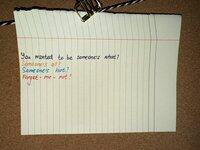 You wanted to be someone's what?
Someone's all?
Someone's hurt?
Forget-me-not!